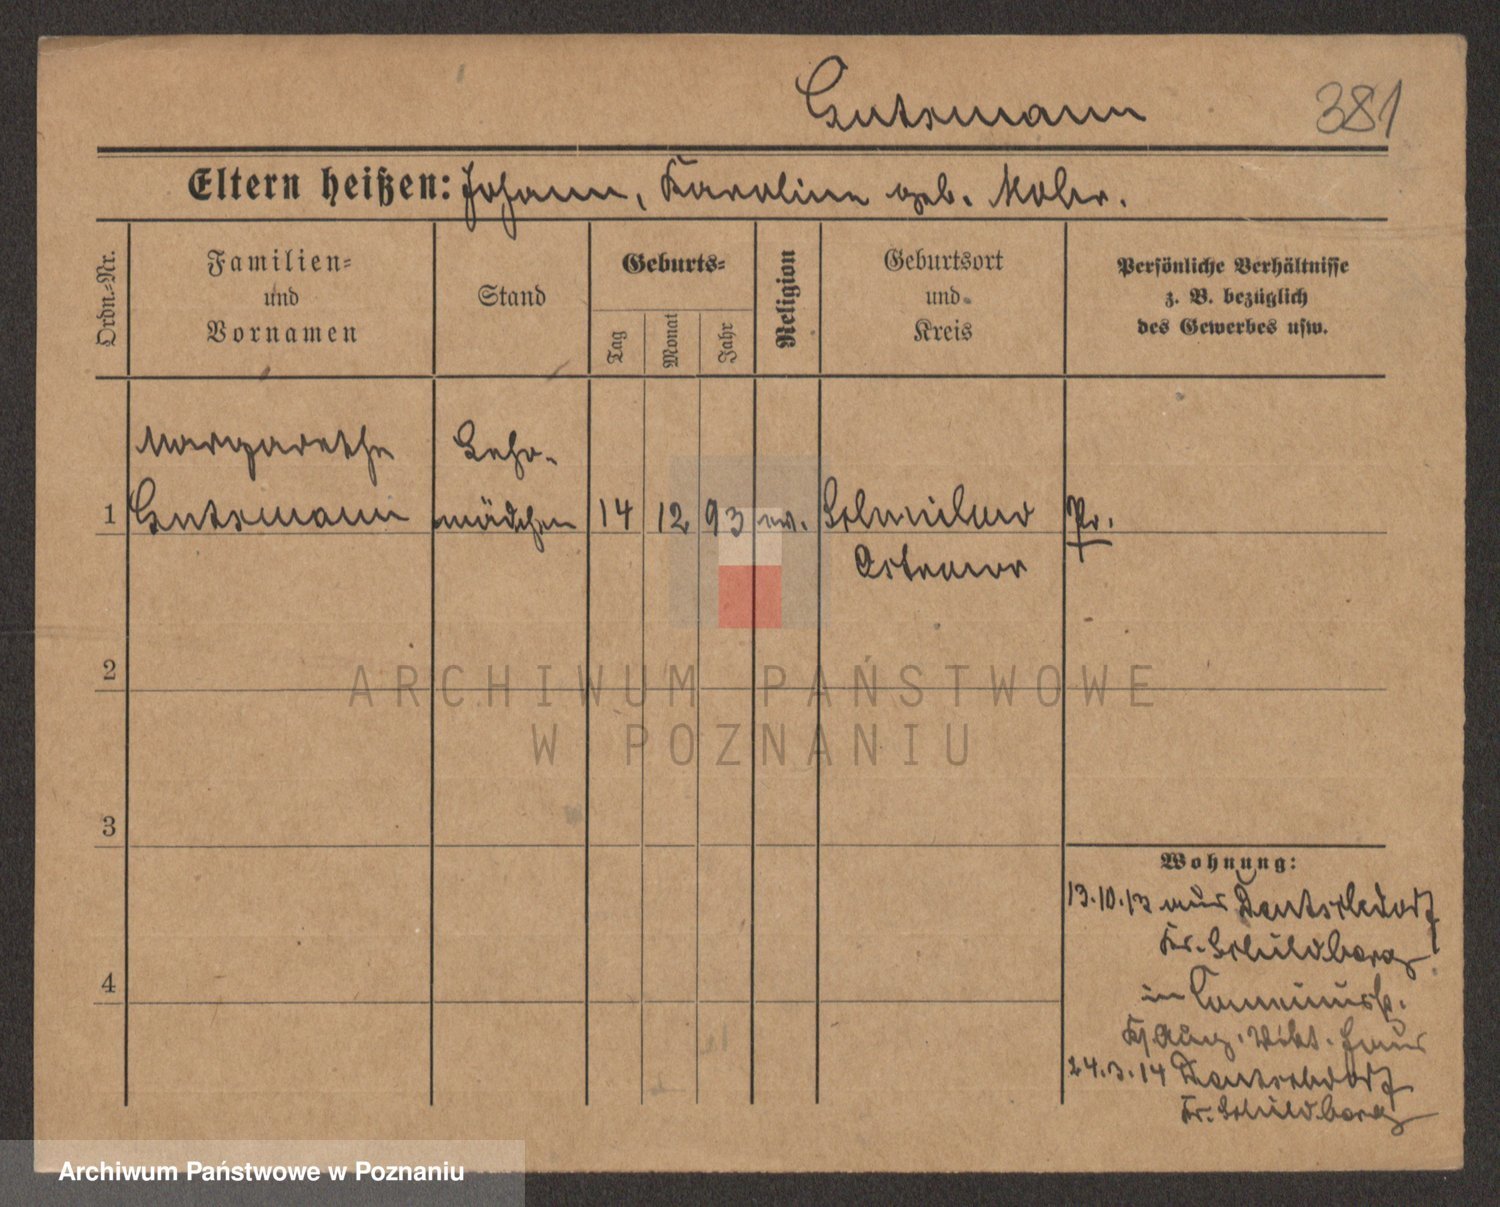 Gutsmann 381
Eltern heißen: Johann, Karoline geb. Mohr.
Ordn.-Nr.
Familien-
und
Vornamen
Stand
Geburts-
Tag
Monat
Jahr
Religion
Geburtsort
und
Kreis
Persönliche Verhältnisse
z. B. bezüglich
des Gewerbes usw.
Margarethe
Lehr-
1 Gutsmann
mädchen 14 12 93 ev. Pr.
2
ARCHIWUM PAŃSTWOWE
W POZNANIU
3
Wohnung:
13.10.13 aus Deutschdorf
Kr. Schildberg
4
in
24.3.14 Deutschdorf
Kr. Schildberg
Archiwum Państwowe w Poznaniu